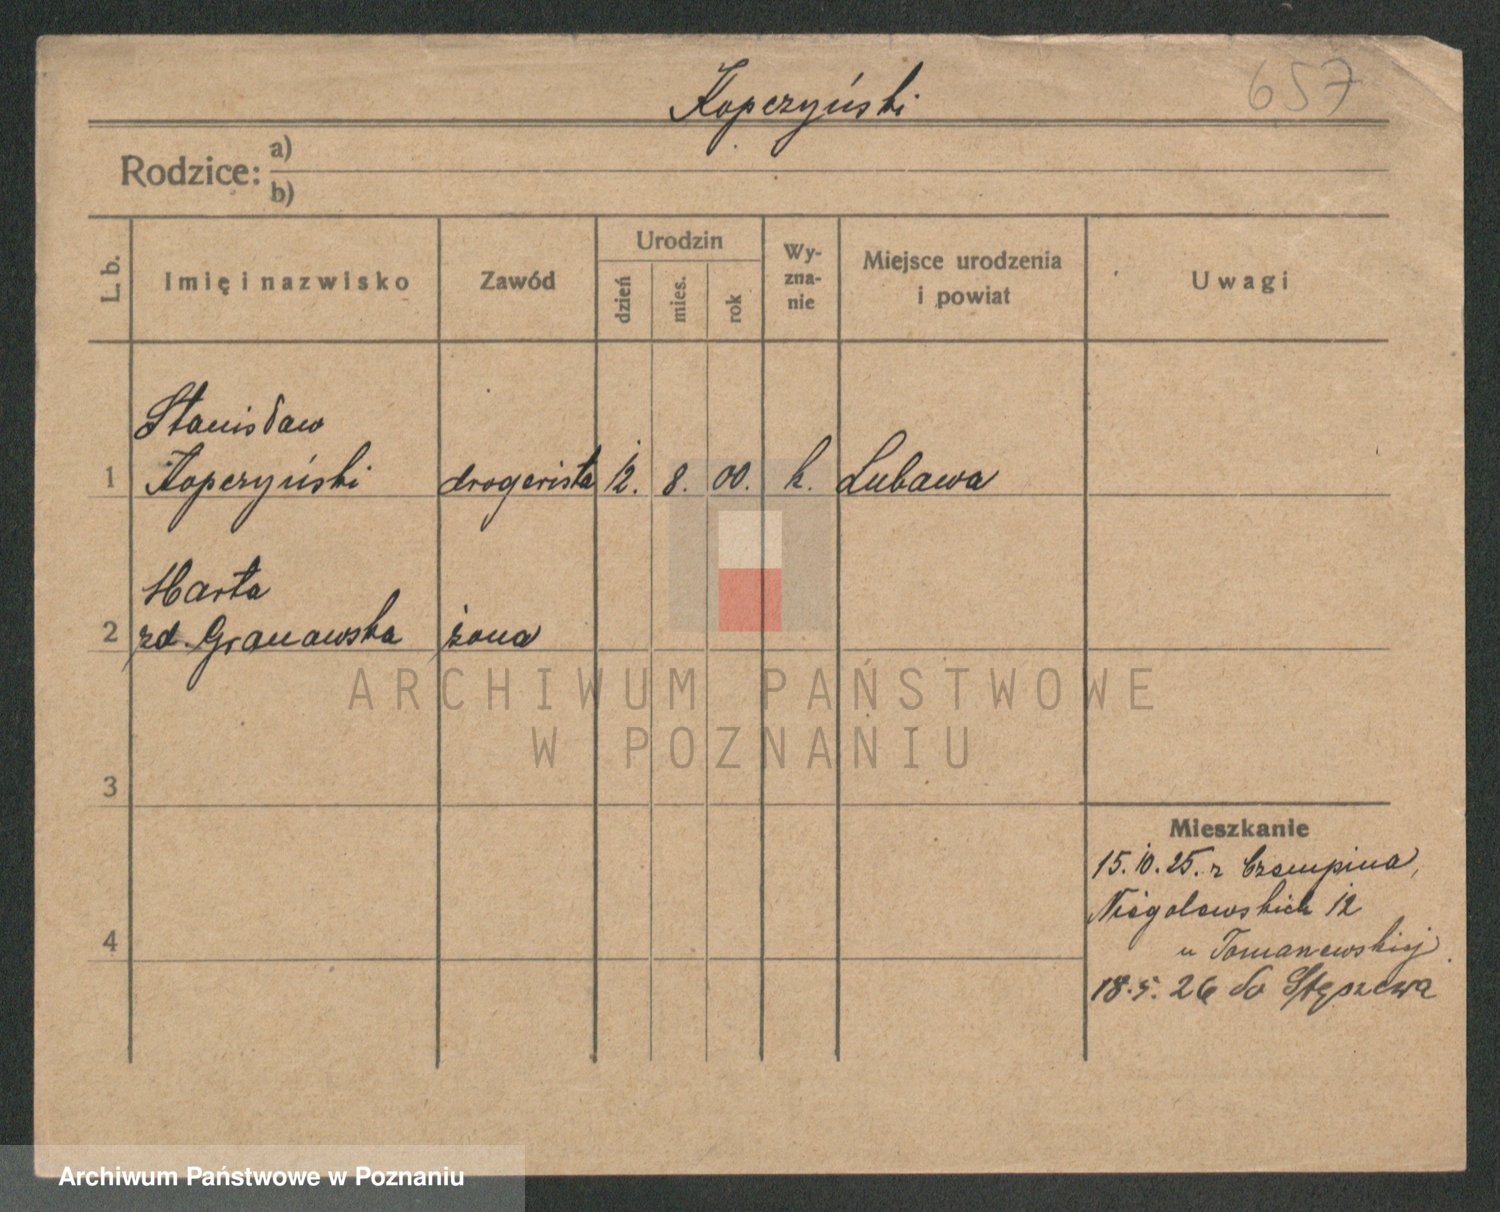 Kopczyński
657
Rodzice: a)
b)
L. b.
Imię i nazwisko
Zawód
Urodzin
dzień
mies.
rok
Wy-
zna-
nie
Miejsce urodzenia
i powiat
Uwagi
Stanisław
1 Kopczyński drogerista 12. 8. 00. k. Lubawa
Marta
2 zd. Granawska żona
3
4
Mieszkanie
15.10.25. z Czempina,
Niegolewskich 12
u Tomanewskiej.
18.5.26 do Stęszewa
ARCHIWUM PAŃSTWOWE
W POZNANIU
Archiwum Państwowe w Poznaniu